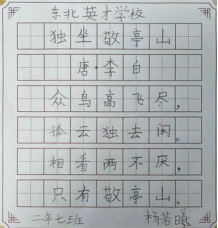 东北英才学校
独坐敬亭山
唐·李白
众鸟高飞尽，
孤云独去闲。
相看两不厌，
只有敬亭山。
二年七班 杨若曦